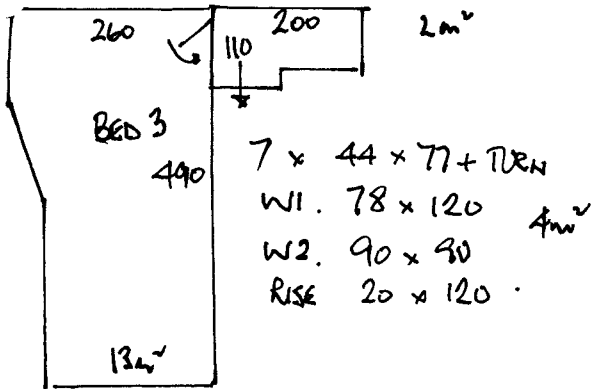 260
200
2m²
110
BED 3
490
7 x 44 x 77 + TURN
W1. 78 x 120
4m²
W2. 90 x 90
RISE 20 x 120
13m²